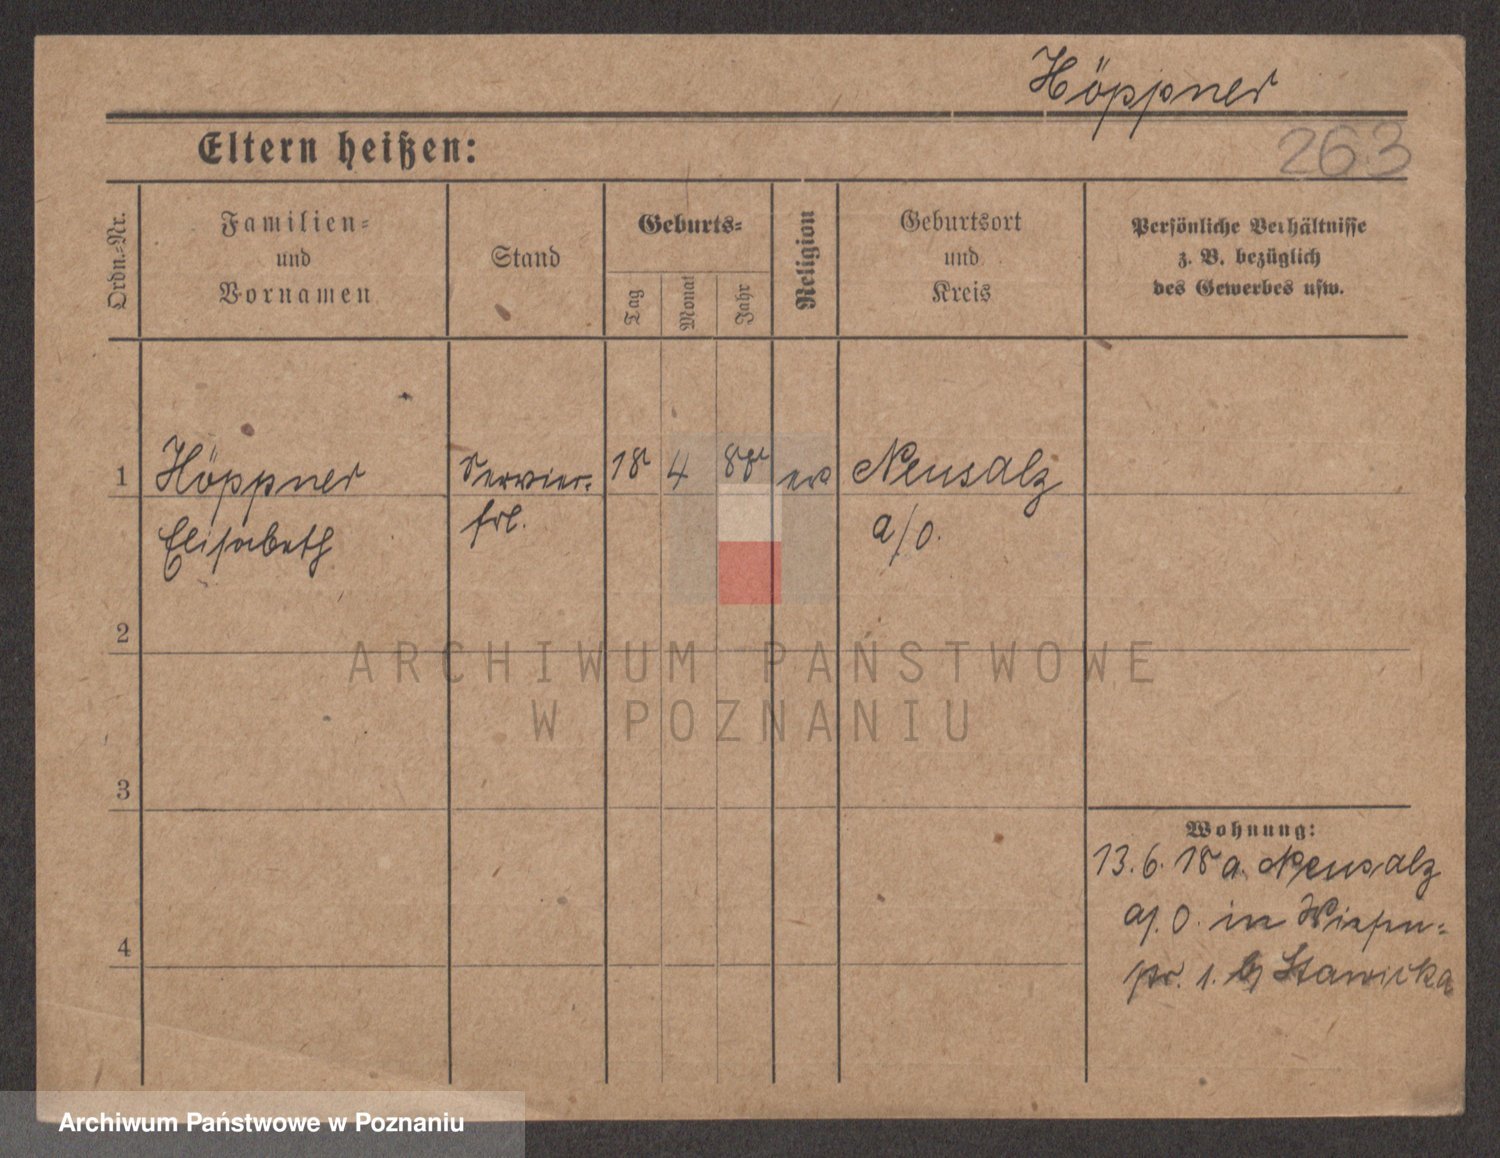 Höppner
Eltern heißen:
263
Ordn.-Nr.
Familien-
und
Vornamen
Stand
Geburts-
Tag
Monat
Jahr
Religion
Geburtsort
und
Kreis
Persönliche Verhältnisse
z. B. bezüglich
des Gewerbes usw.
1
Höppner
Elisabeth
Servier-
frl.
18
4
ev
Neusalz
a/O.
2
3
4
Wohnung:
13. 6. 18 a. Neusalz
a/. O. in Wiesen-
str. 1. b/ Stawicka
ARCHIWUM PAŃSTWOWE
W POZNANIU
Archiwum Państwowe w Poznaniu